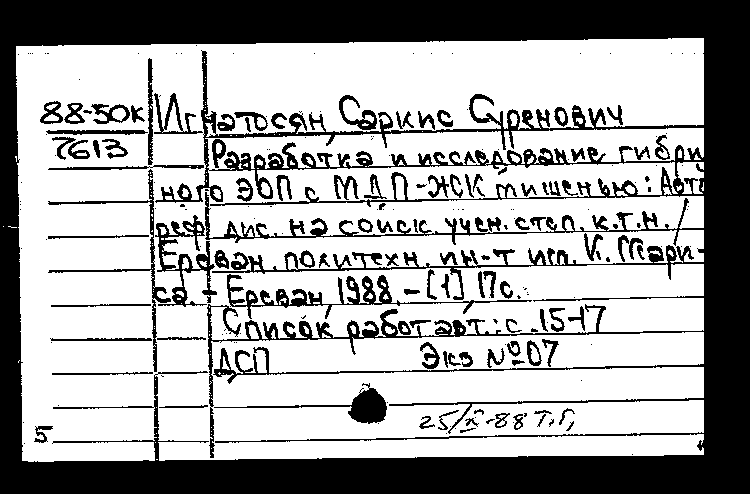 88-50к
7613
Игнатосян, Саркис Суренович
Разработка и исследование гибрид
ного ЭОП с МДП-ЖК мишенью: Авто
реф. дис. на соиск. учен. степ. к.т.н. /
Ереван. политехн. ин-т им. К. Марк-
са. - Ереван, 1988. - [1], 17с.
Список работ авт.: с. 15-17
ДСП Экз №07
25/X-88 Т.Г,
5